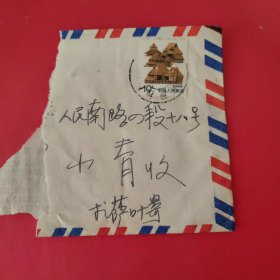 10分 中国人民邮政
人民南路四段十八号
小青收
叶寄